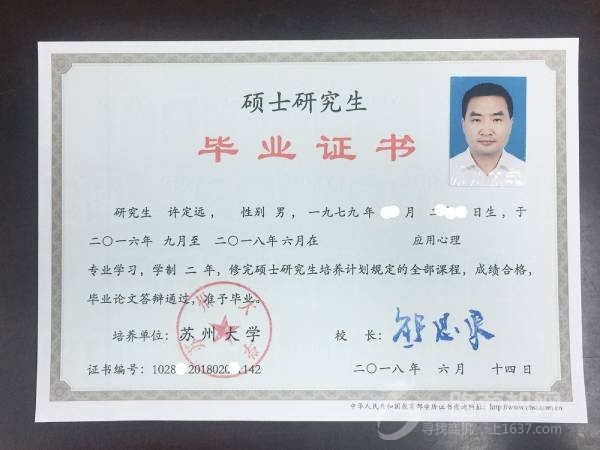 硕士研究生
毕业证书
研究生 许定远， 性别 男，一九七九年 月 二 日生，于
二〇一六年 九月至 二〇一八年 六月在 应用心理
专业学习，学制 二 年，修完硕士研究生培养计划规定的全部课程，成绩合格，
毕业论文答辩通过，准予毕业。
培养单位：苏州大学 校 长：
证书编号：1028 201802 142 二〇一八年 六月 十四日
中华人民共和国教育部学历证书查询网址：http://www.chsi.com.cn
寻找商机，上1637.com